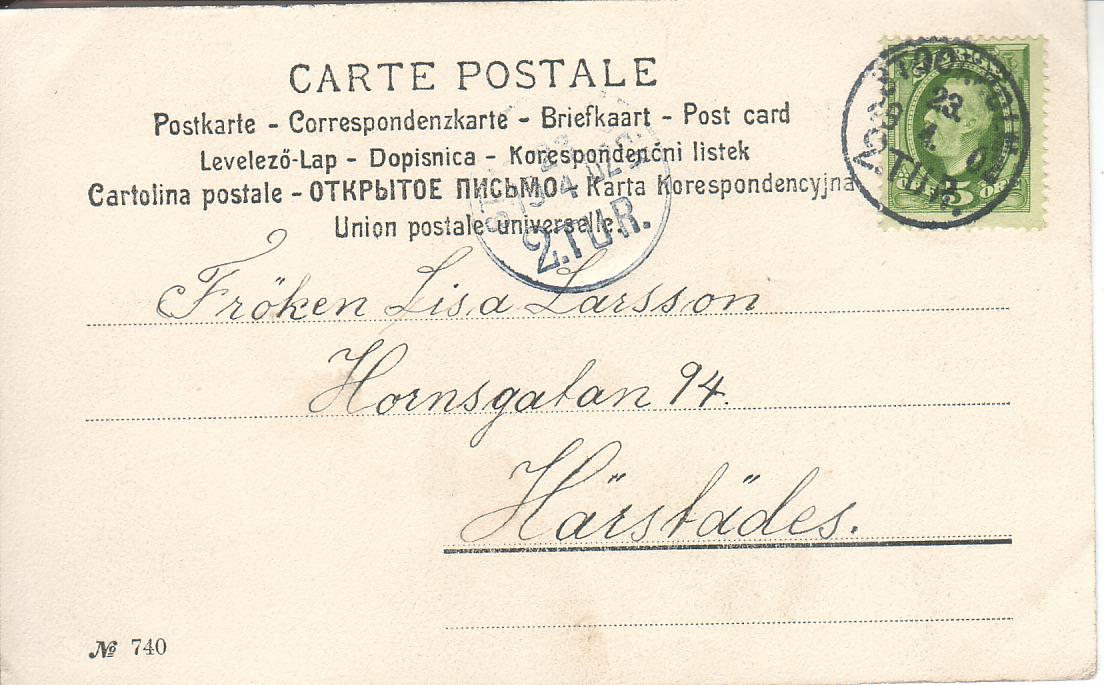 CARTE POSTALE
Postkarte - Correspondenzkarte - Briefkaart - Post card
Levelező-Lap - Dopisnica - Korespondenčni listek
Cartolina postale - ОТКРЫТОЕ ПИСЬМО - Karta Korespondencyjna
Union postale universelle.
23
4
TUR.
5 ÖRE
2.TUR.
Fröken Lisa Larsson
Hornsgatan 94.
Härstädes.
№ 740